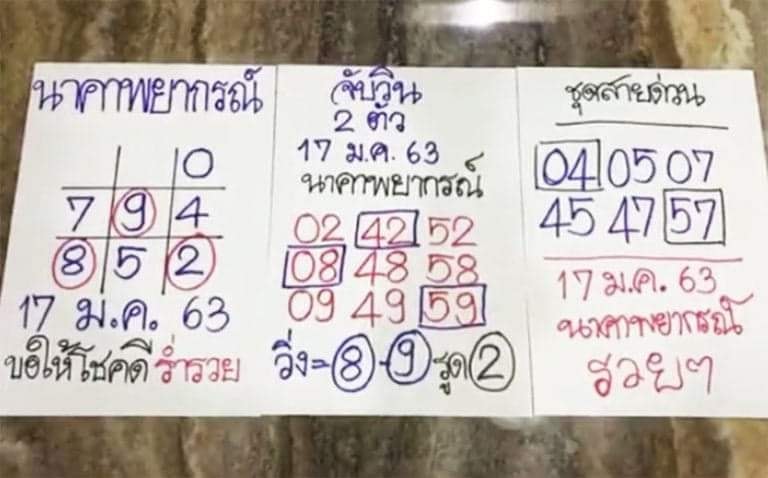 นาคาพยากรณ์
0
7 9 4
8 5 2
17 ม.ค. 63
ขอให้โชคดี ร่ำรวย
จับวิน
2 ตัว
17 ม.ค. 63
นาคาพยากรณ์
02 42 52
08 48 58
09 49 59
วิ่ง=8-9 รูด 2
ชุดสายด่วน
04 05 07
45 47 57
17 ม.ค. 63
นาคาพยากรณ์
รวยๆ